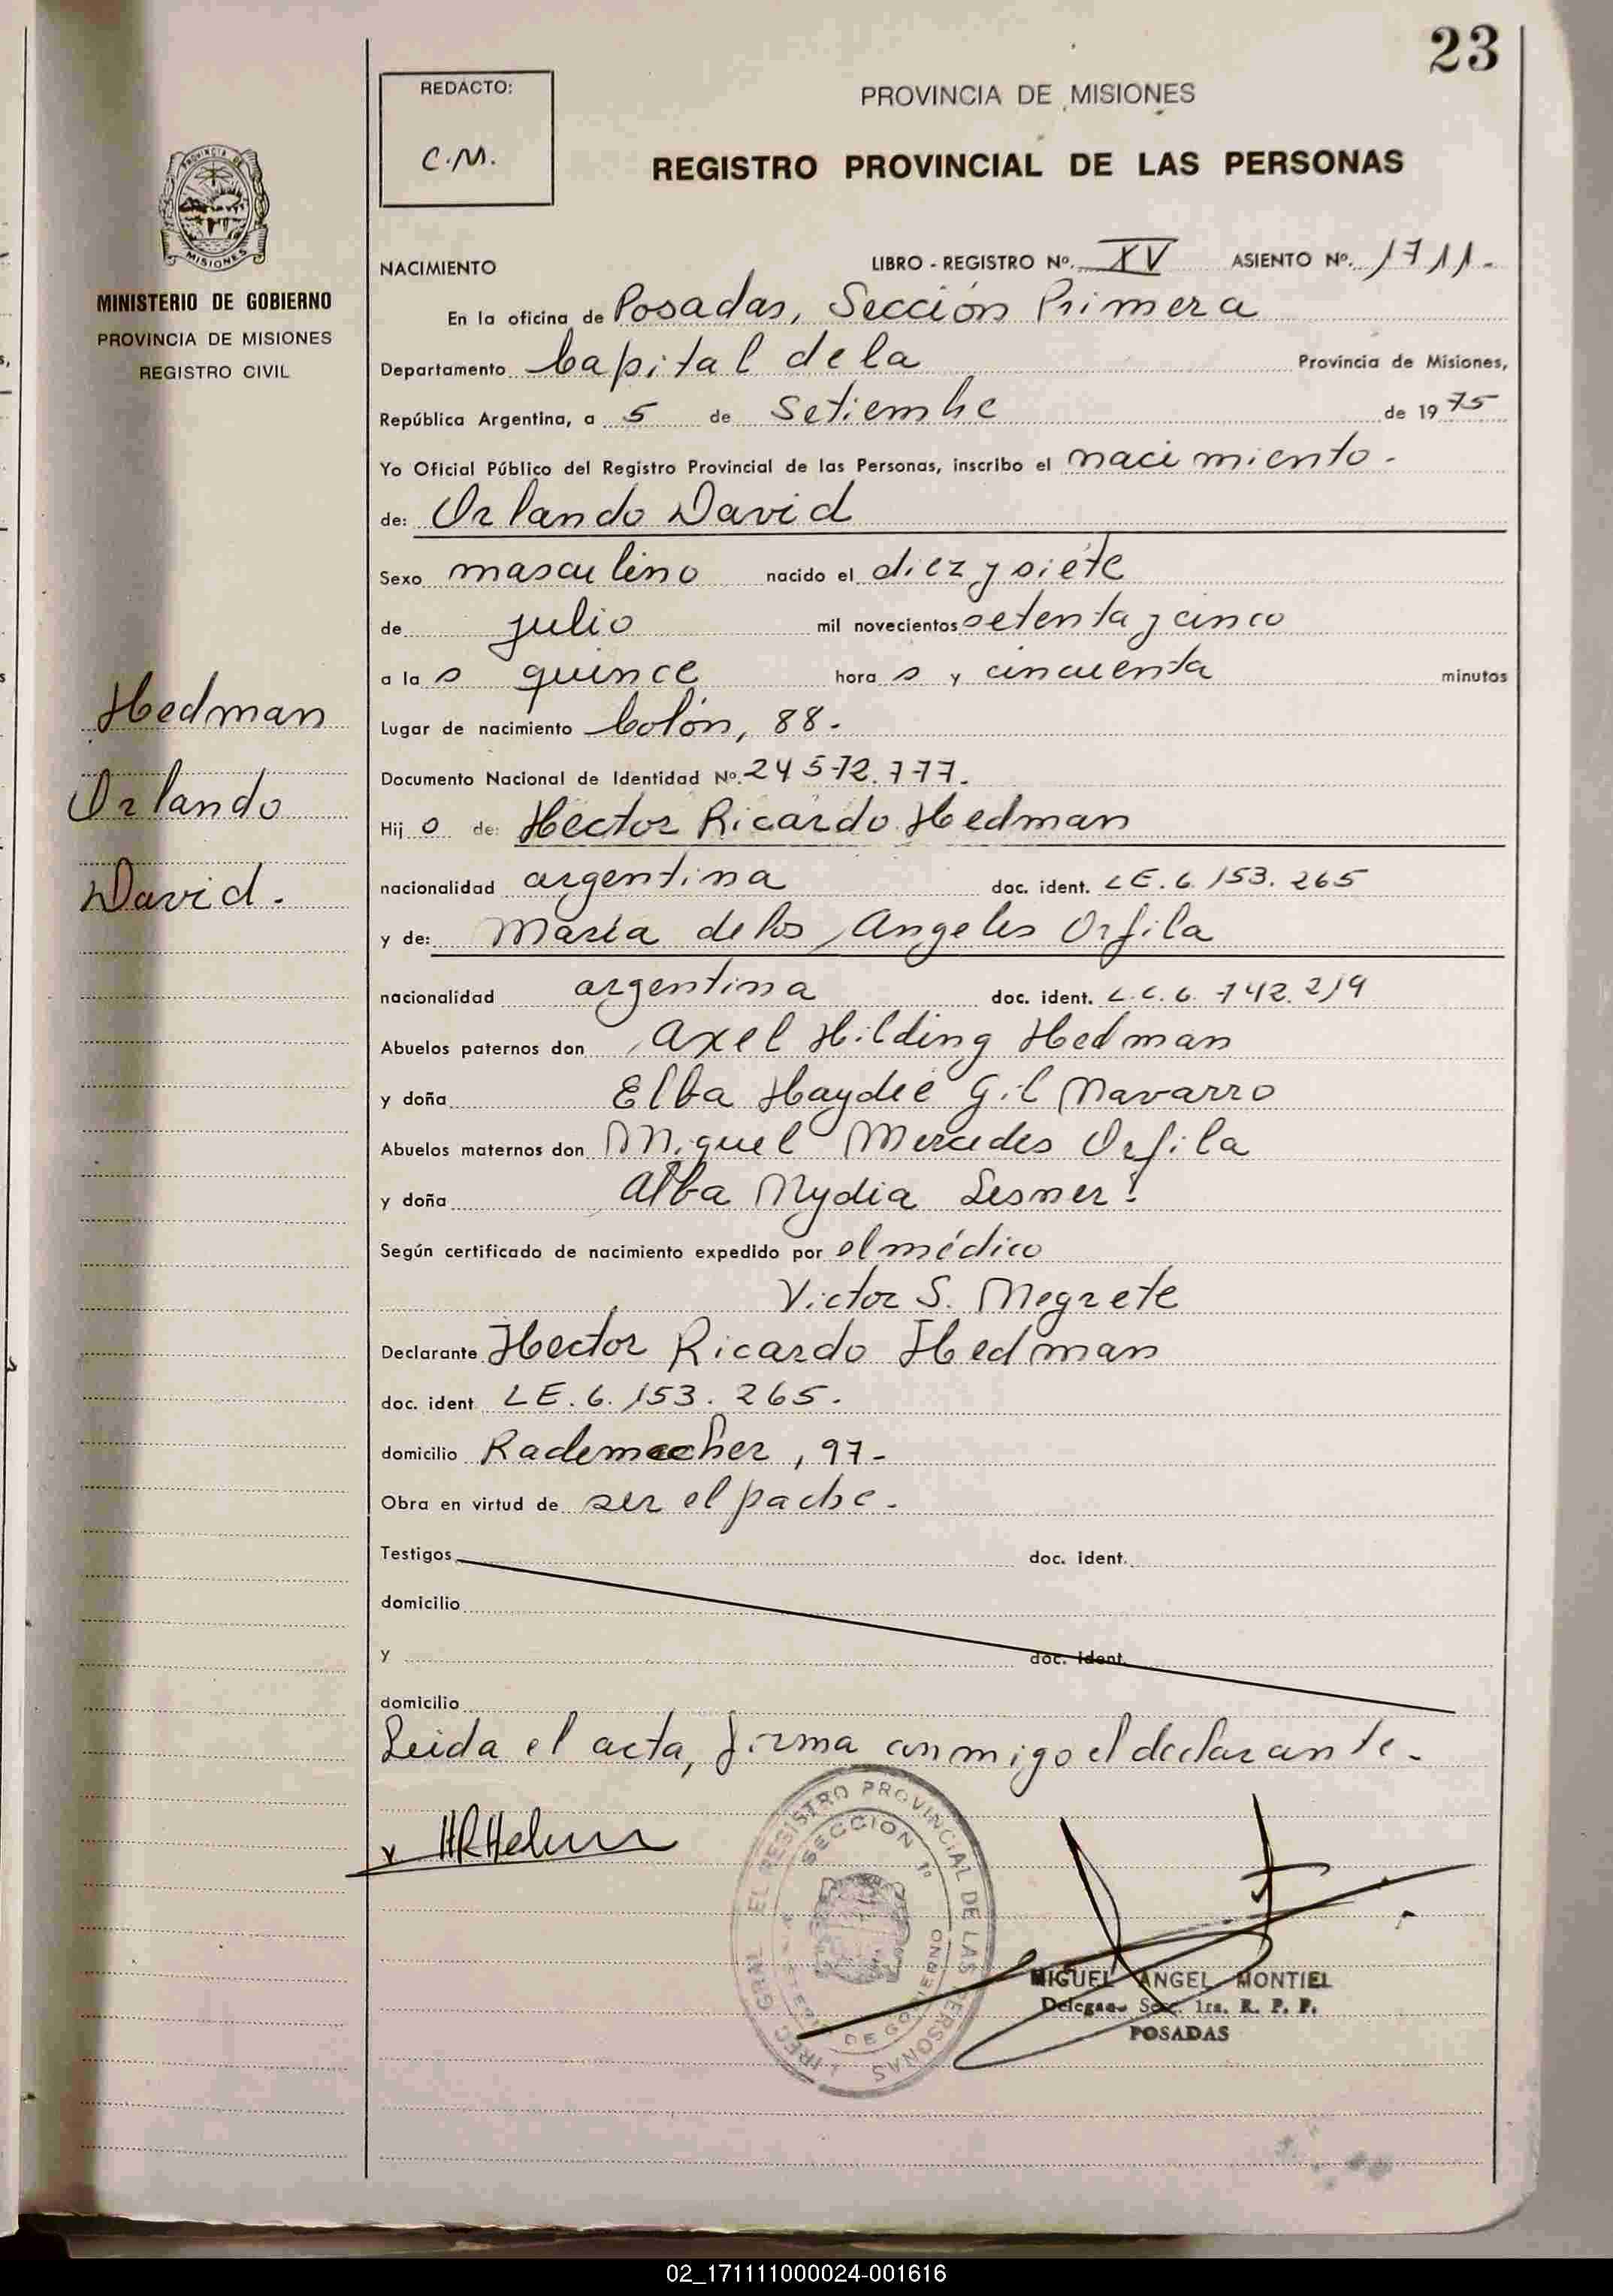 23
REDACTO:
C.M.
PROVINCIA DE MISIONES
REGISTRO PROVINCIAL DE LAS PERSONAS
PROVINCIA DE
MISIONES
MINISTERIO DE GOBIERNO
PROVINCIA DE MISIONES
REGISTRO CIVIL
NACIMIENTO LIBRO - REGISTRO Nº. XV ASIENTO Nº. 1711.-
En la oficina de Posadas, Sección Primera
Departamento Capital de la Provincia de Misiones,
República Argentina, a 5 de Setiembre de 1975
Yo Oficial Público del Registro Provincial de las Personas, inscribo el nacimiento.-
de: Orlando David
Sexo masculino nacido el diez y siete
de julio mil novecientos setenta y cinco
a las quince horas y cincuenta minutos
Lugar de nacimiento Colón, 88.-
Documento Nacional de Identidad Nº. 24 572.777.
Hijo de: Hector Ricardo Hedman
nacionalidad argentina doc. ident. LE. 6.153.265
y de: María de los Angeles Orfila
nacionalidad argentina doc. ident. L.C. 6.742.219
Abuelos paternos don Axel Hilding Hedman
y doña Elba Haydeé Gil Navarro
Abuelos maternos don Miguel Mercedes Orfila
y doña Alba Nydia Lesner.
Según certificado de nacimiento expedido por el médico
Victor S. Negrete
Declarante Hector Ricardo Hedman
doc. ident LE. 6.153.265.
domicilio Rademacher, 97-
Obra en virtud de ser el padre.
Testigos doc. ident.
domicilio
y doc. ident.
domicilio
Leida el acta, firma conmigo el declarante.-
Hedman
Orlando
David.
EL REGISTRO PROVINCIAL DE LAS PERSONAS
SECCION 1ª
DE GOBIERNO
MIGUEL ANGEL MONTIEL
Secc. 1ra. R. P. P.
POSADAS
02_171111000024-001616